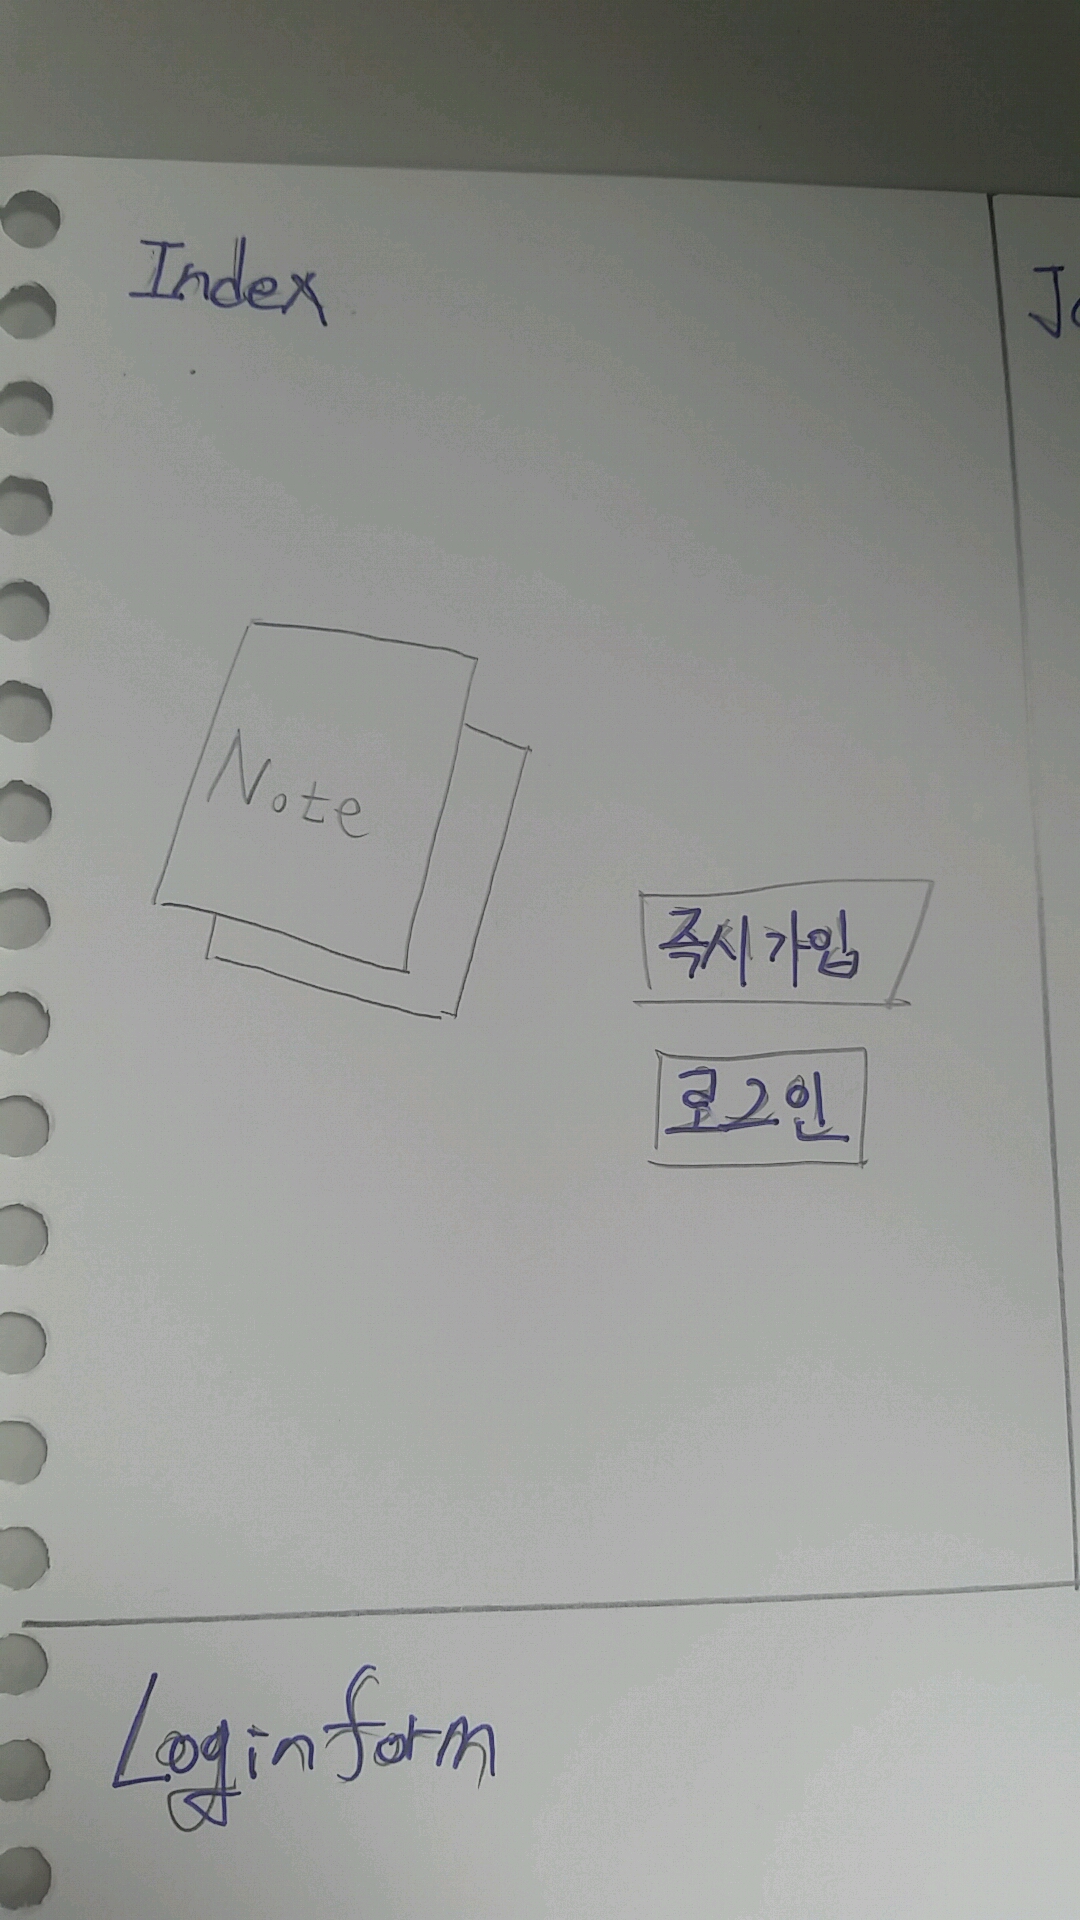 Index
Note
즉시가입
로그인
Login form